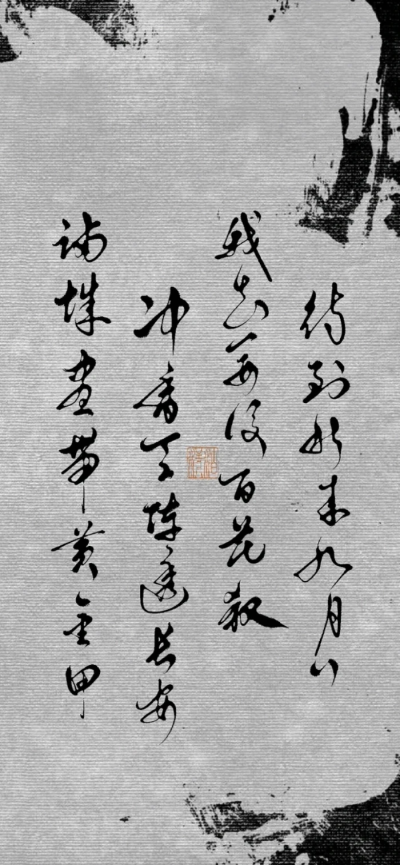 待到秋来九月八
我花开后百花杀
冲香天阵透长安
满城尽带黄金甲